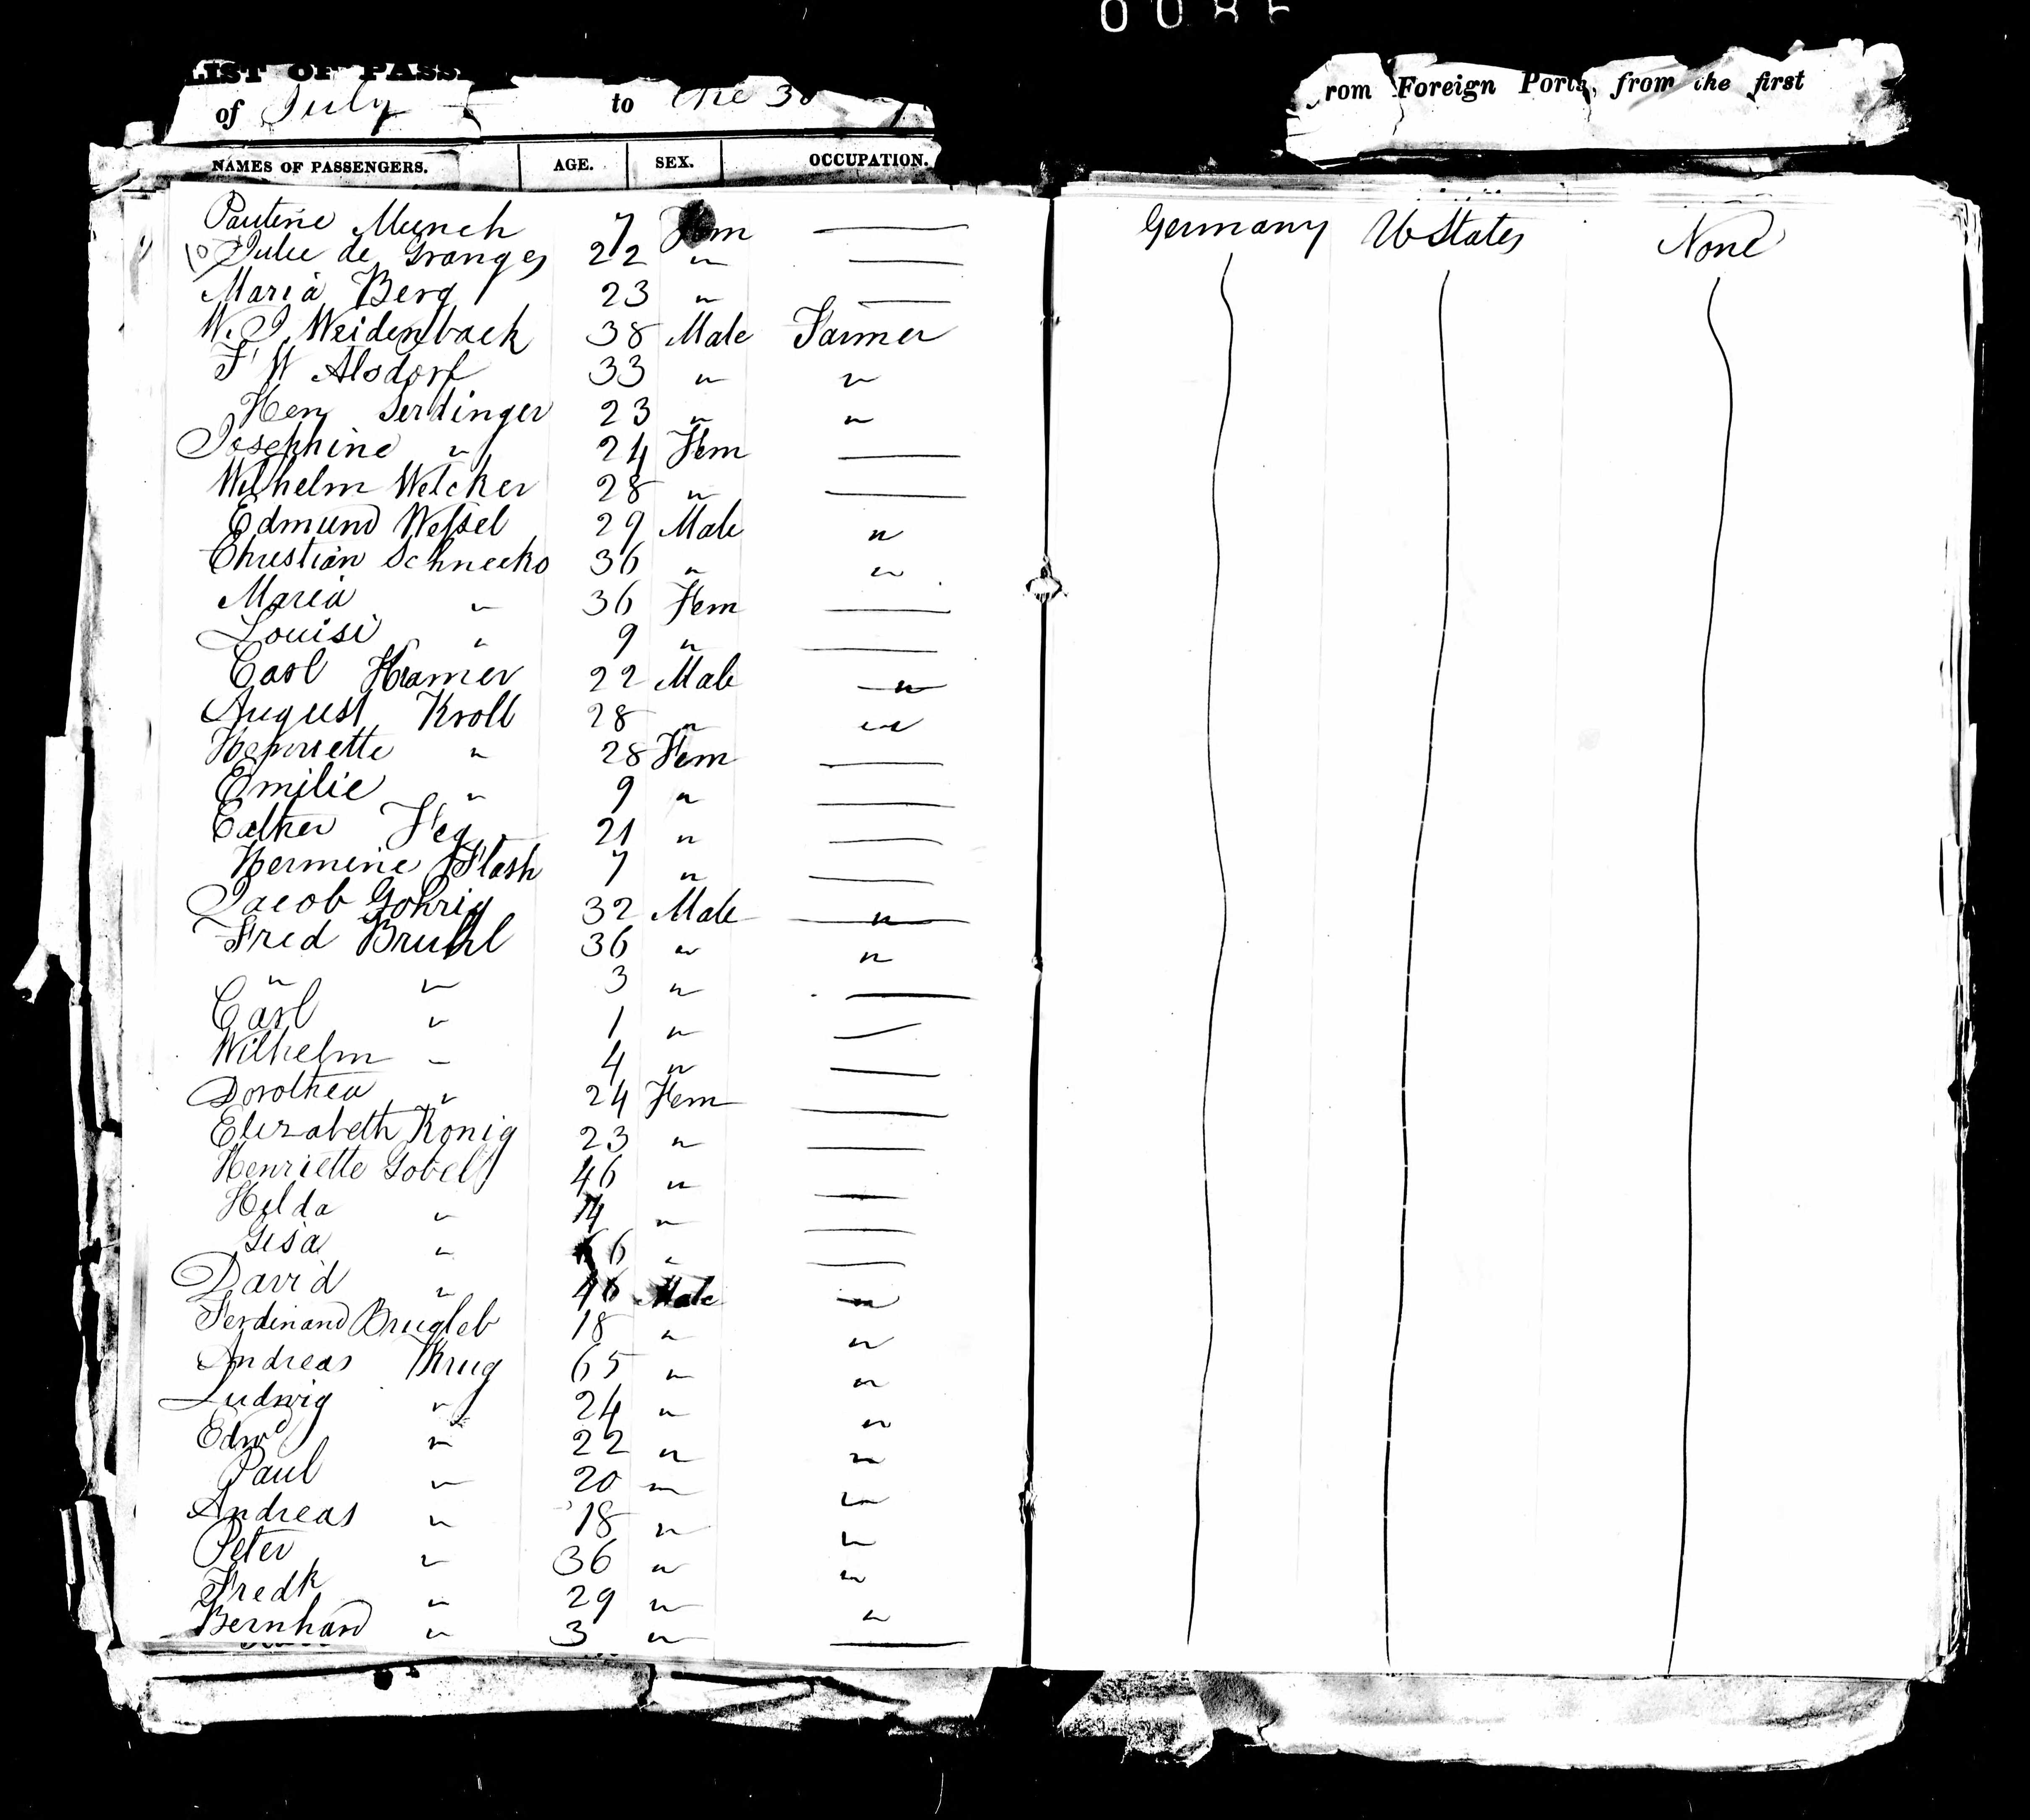 LIST OF PASS
of July to the 30
rom Foreign Ports, from the first
NAMES OF PASSENGERS. AGE. SEX. OCCUPATION.
Pauline Muench 7 Fem — Germany U States None
10 Julie de Granges 22 " —
Maria Berg 23 " —
W. J. Weidenback 38 Male Farmer
F W Alsdorf 33 " "
Hen Serdinger 23 " "
Josephine " 24 Fem —
Wilhelm Welcker 28 " —
Edmund Wessel 29 Male "
Christian Schneeko 36 " "
Maria " 36 Fem —
Louisi " 9 " —
Carl Kramer 22 Male "
August Kroll 28 " "
Henriette " 28 Fem —
Emilie " 9 " —
Esther Feg 21 " —
Hermine Flash 7 " —
Jacob Gohrig 32 Male "
Fred Bruhl 36 " "
" " 3 " —
Carl " 1 " —
Wilhelm " 4 " —
Dorothea " 24 Fem —
Elizabeth Konig 23 " —
Henriette Gobel 46 " —
Hilda " " —
Gisa " " —
David " 46 Male "
Ferdinand Brugleb 18 " "
Andreas Krug 65 " "
Ludwig " 24 " "
Edwd " 22 " "
Paul " 20 " "
Andreas " 18 " "
Peter " 36 " "
Fredk " 29 " "
Bernhard " 3 " —